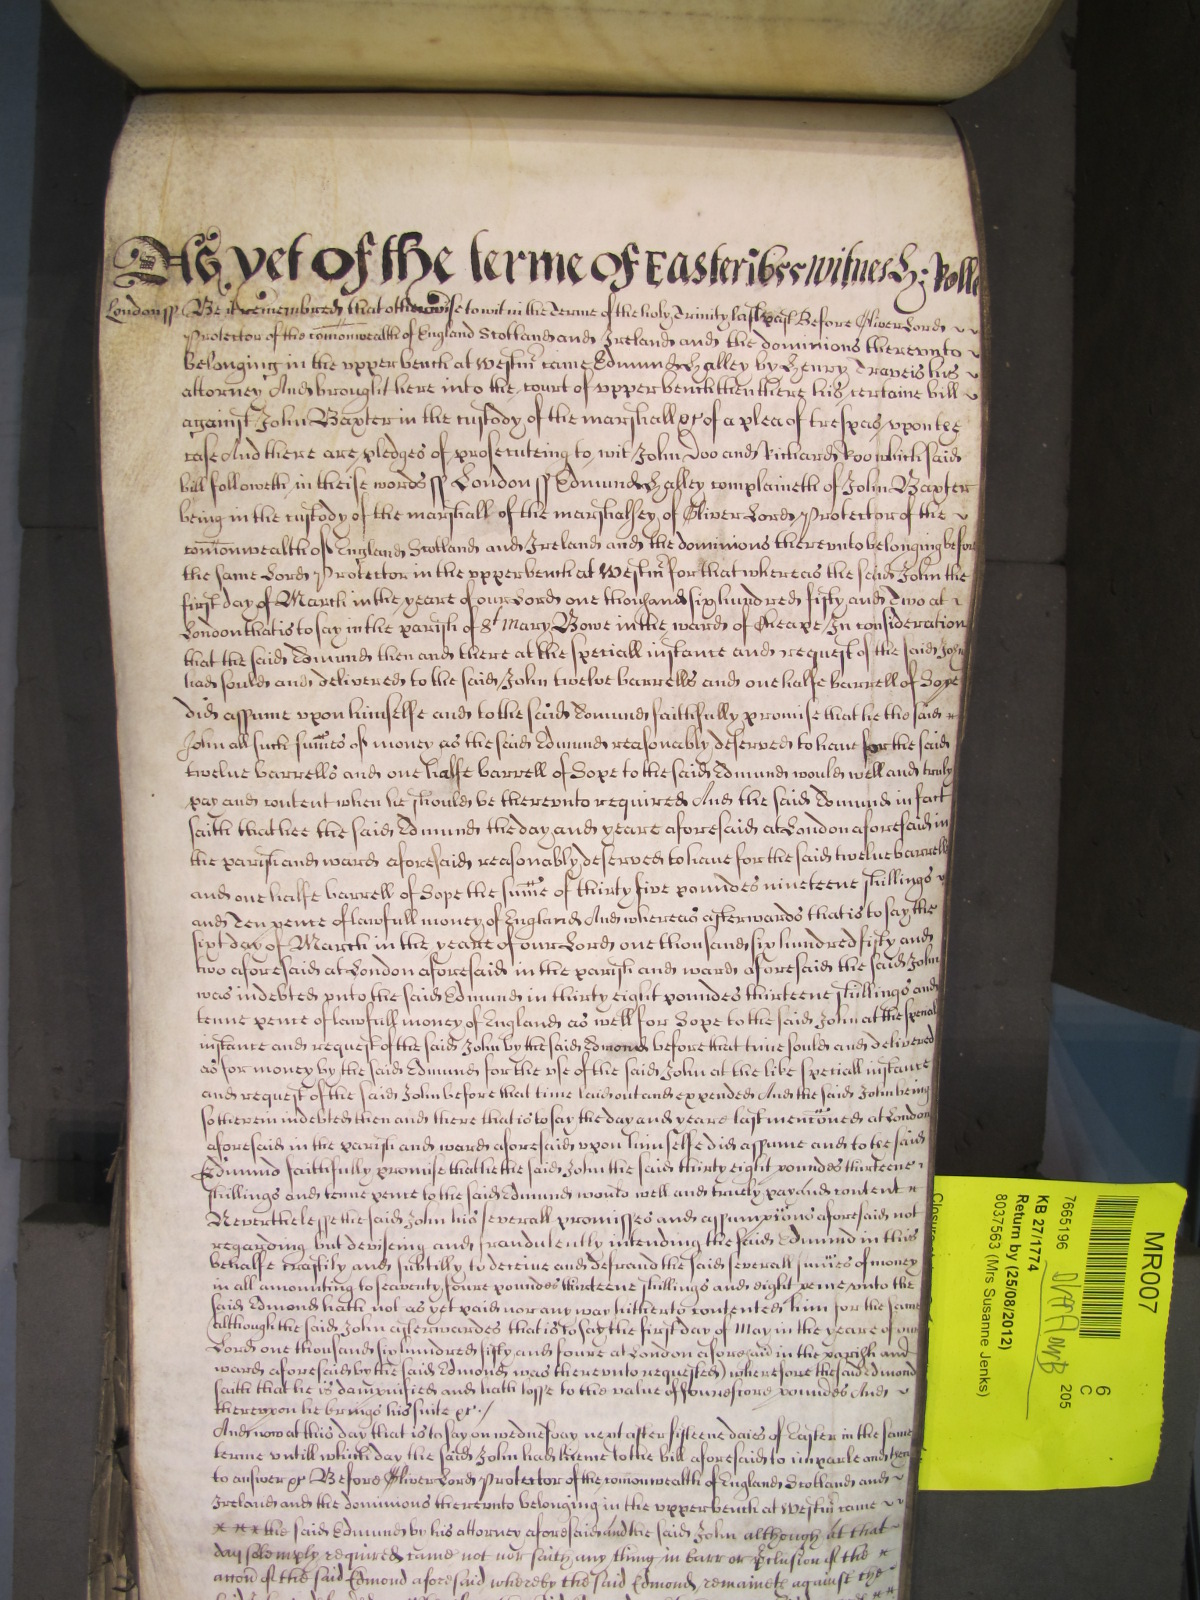 As yet of the terme of Easter 1655 witnes H: Rolle
London ss Be it remembred that otherwise to wit in the Terme of the holy Trinity last past Before Oliver Lord
Protector of the comonwealth of England Scotland and Ireland and the dominions therevnto
belonging in the vpper bench at Westmr came Edmund Halley by Henry Traveis his
attorney And brought here into the court of vpper bench then there his certaine bill
against John Baxter in the custody of the marshall &c of a plea of trespas vpon the
case And there are pledges of prosecuteing to wit John Doo and Richard Roo which said
bill followeth in theise words ss London ss Edmund Halley complaineth of John Baxter
being in the custody of the marshall of the marshalsey of Oliver Lord Protector of the
comonwealth of England Scotland and Ireland and the dominions therevnto belonging before
the same Lord Protector in the vpper bench at Westmr for that whereas the said John the
first day of March in the yeare of our Lord one thousand six hundred fifty and Two at
London that is to say in the parish of St Mary Bowe in the ward of Cheape In consideration
that the said Edmund then and there at the speciall instance and request of the said John
had sould and delivered to the said John twelve barrells and one halfe barrell of Sope
did assume vpon himselfe and to the said Edmund faithfully promise that he the said
John all such sumes of money as the said Edmund reasonably deserved to have for the said
twelve barrells and one halfe barrell of Sope to the said Edmund would well and truly
pay and content when he should be therevnto required And the said Edmund in fact
saith that hee the said Edmund the day and yeare aforesaid at London aforesaid in
the parish and ward aforesaid reasonably deserved to have for the said twelve barrells
and one halfe barrell of Sope the sume of thirty five poundes nineteene shillings
and Ten pence of lawfull money of England And whereas afterwards that is to say the
sixt day of March in the yeare of our Lord one thousand six hundred fifty and
two aforesaid at London aforesaid in the parish and ward aforesaid the said John
was indebted vnto the said Edmund in thirty eight poundes thirteene shillings and
tenne pence of lawfull money of England as well for Sope to the said John at the speciall
instance and request of the said John by the said Edmond before that time sould and delivered
as for money by the said Edmund for the vse of the said John at the like speciall instance
and request of the said John before that time laid out and expended And the said John being
so therein indebted then and there that is to say the day and yeare last mencioned at London
aforesaid in the parish and ward aforesaid vpon himselfe did assume and to the said
Edmund faithfully promise that he the said John the said thirty eight poundes thirteene
shillings and tenne pence to the said Edmund would well and truely pay and content
Neverthelesse the said John his severall promisses and assumpcions aforesaid not
regarding but deviseing and fraudulently intending the said Edmund in this
behalfe craftily and subtilly to deceive and defraud the said severall sumes of money
in all amounting to seaventy foure poundes thirteene shillings and eight pence vnto the
said Edmond hath not as yet paid nor any way hitherto contented him for the same
although the said John afterwardes that is to say the first day of May in the yeare of our
Lord one thousand six hundred fifty and foure at London aforesaid in the parish and
ward aforesaid by the said Edmond was therevnto requested) wherefore the said Edmond
saith that he is damnified and hath losse to the value of fourescore poundes And
therevpon he brings his suite &c./
And now at this day that is to say on wednesday next after fifteene daies of Easter in the same
terme vntill which day the said John had licence to the bill aforesaid to imparle and then
to answer &c Before Oliver Lord Protector of the comonwealth of England Scotland and
Ireland and the dominions therevnto belonging in the vpper bench at Westmr came
the said Edmund by his attorney aforesaid and the said John although at that
day solemply required came not nor saith any thing in barr or preclusion of the
accon of the said Edmond aforesaid whereby the said Edmond remaineth against the
MR007
6
C
205
7665196
KB 27/1774
Return by (25/08/2012)
8037563 (Mrs Susanne Jenks)